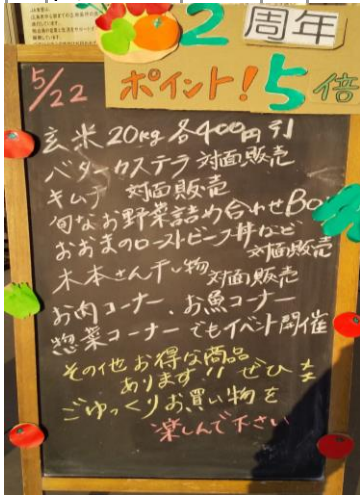 2周年
ポイント!5倍
5/22
玄米20kg各400円引
バターカステラ対面販売
キムチ 対面販売
旬なお野菜詰め合わせBo
おおまのローストビーフ丼など
対面販売
木本さん干し物対面販売
お肉コーナー、お魚コーナー
惣菜コーナーでもイベント開催
その他お得な商品
あります!!ぜひ
ごゆっくりお買い物を
楽しんで下さい